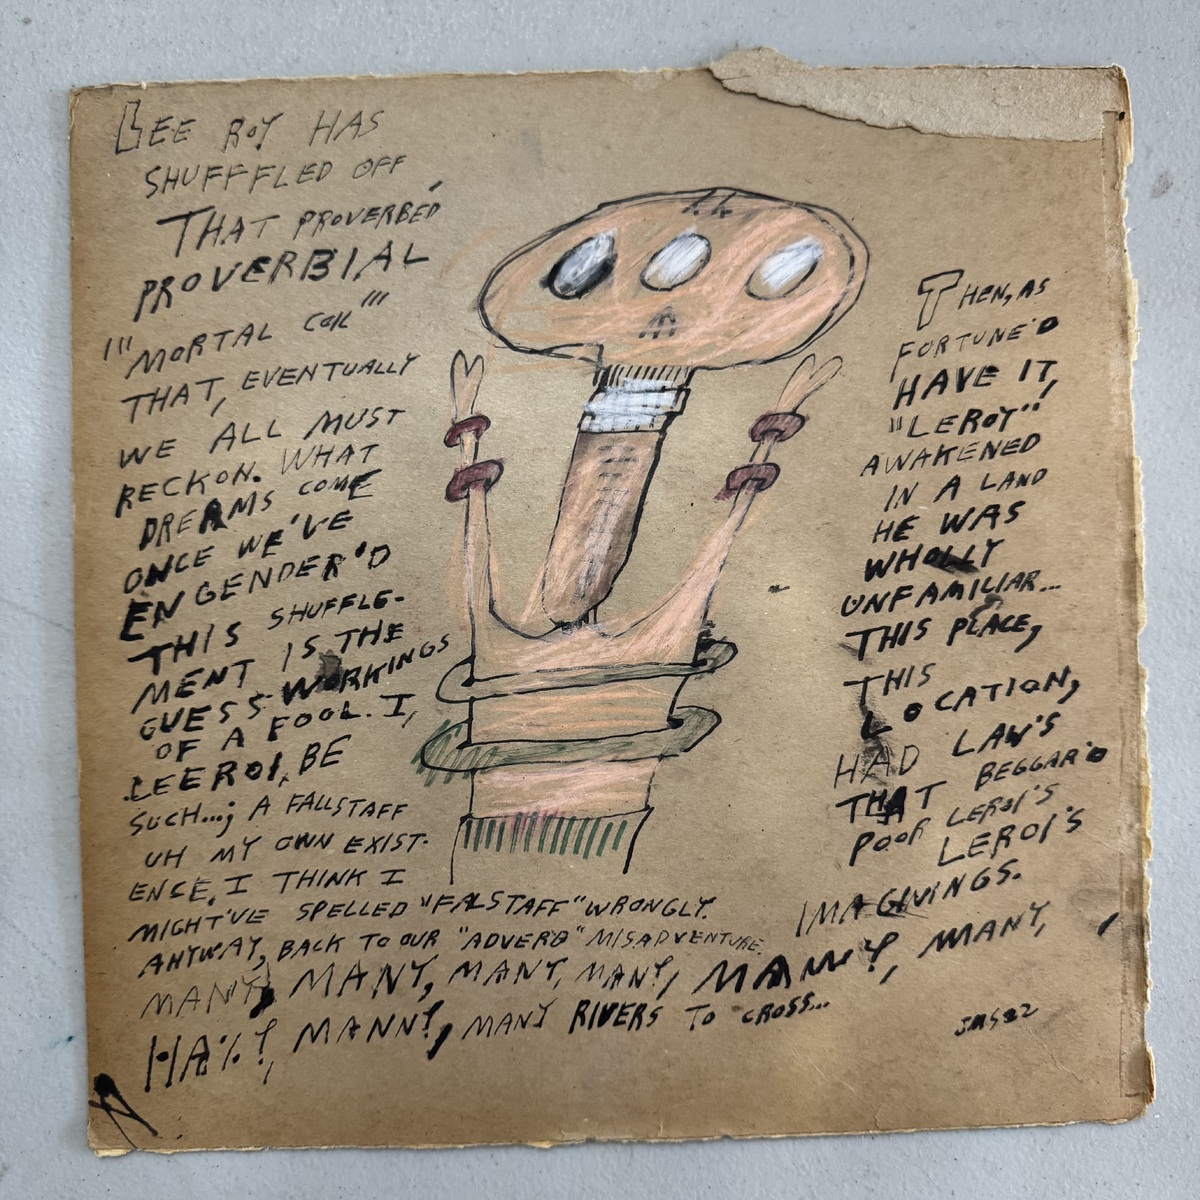 LEE ROY HAS
SHUFFFLED OFF
THAT PROVERBED'
PROVERBIAL
"'MORTAL COIL"'
THAT, EVENTUALLY
WE ALL MUST
RECKON. WHAT
DREAMS COME
ONCE WE'VE
ENGENDER'D
THIS SHUFFLE-
MENT IS THE
GUESS-WORKINGS
OF A FOOL. I,
LEEROI, BE
SUCH...; A FALLSTAFF
UH MY OWN EXIST-
ENCE. I THINK I
MIGHT'VE SPELLED "FALSTAFF" WRONGLY.
ANYWAY, BACK TO OUR "ADVERB" MISADVENTURE
MANY, MANY, MANY, MANY, MANY, MANY,
MANNY, MANY RIVERS TO CROSS...
THEN, AS
FORTUNE'D
HAVE IT,
"LEROY"
AWAKENED
IN A LAND
HE WAS
WHOLLY
UNFAMILIAR...
THIS PLACE,
THIS
LOCATION,
HAD LAW'S
THAT BEGGAR'D
POOR LEROI'S
LEROI'S
IMAGIVINGS.
JMS22